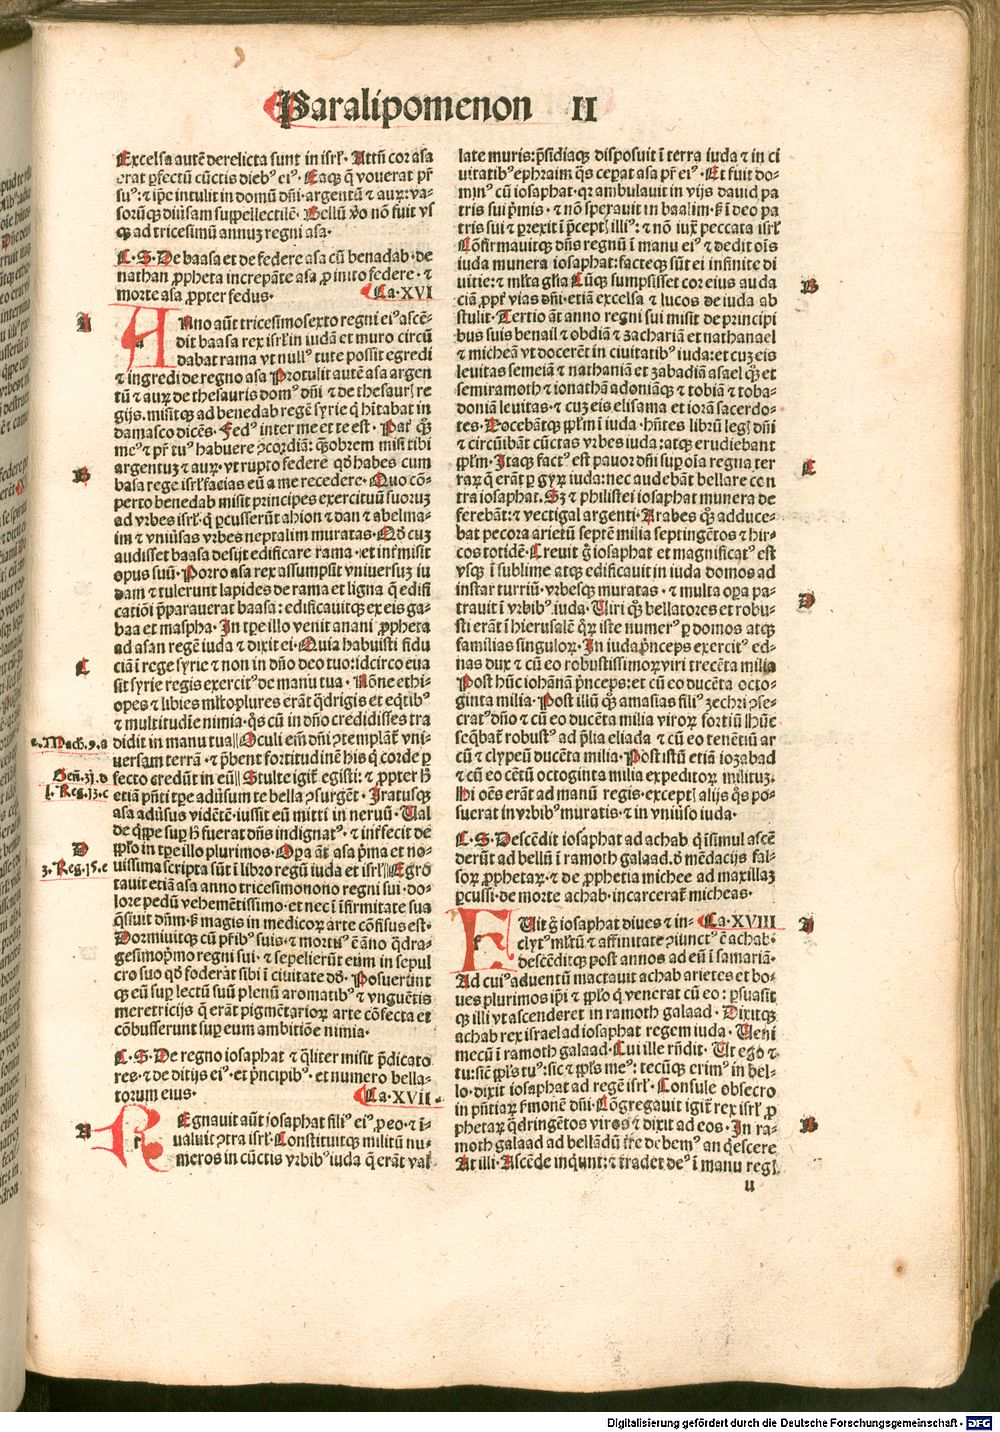 Paralipomenon II
Excelsa autē derelicta sunt in isrł. Attñ cor asa
erat ꝑfectū cūctis diebꝰ eiꝰ. Eaqꝫ q̄ vouerat pr̄
suꝰ: ⁊ ip̄e intulit in domū dn̄i. argentū ⁊ auꝝ: va-
sorūqꝫ diūsam suppellectilē. Bellū v̄o nō fuit vs
qꝫ ad tricesimū annuꝫ regni asa.
C. S. De baasa et de federe asa cū benadab. de
nathan ꝓpheta increpāte asa ꝓ inito federe. ⁊
morte asa ꝓpter fedus. Ca. XVI
A
ANno aūt tricesimosexto regni eiꝰ ascē-
dit baasa rex isrł in iudā et muro circū
dabat rama vt nullꝰ tute possit egredi
⁊ ingredi de regno asa Protulit autē asa argen
tū ⁊ auꝝ de thesauris domꝰ dn̄i ⁊ de thesauꝭ re
gijs. misitqꝫ ad benedab regē syrie q̄ hītabat in
damasco dicēs. Fedꝰ inter me et te est. Pat̄ qꝫ
meꝰ ⁊ pr̄ tuꝰ habuere ꝯcordiā: qēobrem misi tibi
argentuꝫ ⁊ auꝝ. vt rupto federe qd̄ habes cum
B
basa rege isrł facias eū a me recedere. Quo cō-
perto benedab misit principes exercituū suoruꝫ
ad vrbes isrł. q̄ ꝑcusserūt ahion ⁊ dan ⁊ abelma-
im ⁊ vniūsas vrbes neptalim muratas. Qd̄ cuꝫ
audisset baasa desijt edificare rama. et int̄misit
opus suū. Porro asa rex assumpsit vniuersuꝫ iu
dam ⁊ tulerunt lapides de rama et ligna q̄ edifi
catiōi p̄parauerat baasa: edificauitqꝫ ex eis ga-
baa et maspha. In tꝑe illo venit anani ꝓpheta
ad asan regē iuda ⁊ dixit ei. Quia habuisti fidu
C
ciā ī rege syrie ⁊ non in dn̄o deo tuo: idcirco eua
sit syrie regis exercitꝰ de manu tua. Nōne ethi-
opes ⁊ libies ml̄toplures erāt q̄drigis et eq̄tibꝰ
⁊ multitudīe nimia. qs̄ cū in dn̄o credidisses tra
2. Mach. 9. a
didit in manu tua|| Oculi em̄ dn̄i ꝯtemplāt̄ vni-
uersam terrā. ⁊ p̄bent fortitudinē his q̄ corde ꝑ
Gen̄. 31. d
fecto credūt in eū|| Stulte igit̄ egisti: ⁊ ꝓpter h̄
1. Reg. 13. c
etiā pn̄ti tꝑe adūsum te bella ꝯsurgēt. Iratusqꝫ
asa adūsus vidētē: iussit eū mitti in neruū. Ual
de q̄ppe suꝑ h̄ fuerat dn̄s indignatꝰ. ⁊ int̄fecit de
D
pp̄lo in tꝑe illo plurimos. Oꝑa āt̄ asa p̄ma et no-
3. Reg. 15. e
uissima scripta sūt ī libro regū iuda et isrł|| Egro
tauit etiā asa anno tricesimonono regni sui. do-
lore pedū vehemētissimo. et nec ī ifirmitate sua
q̄siuit dn̄m. sꝫ magis in medicoꝝ arte cōfisus est.
Dormiuitqꝫ cū pr̄ibꝰ suis. ⁊ mortuꝰ ē āno q̄dra-
gesimop̄mo regni sui. ⁊ sepelierūt eum in sepul
cro suo qd̄ foderat sibi ī ciuitate dd̄. Posuerūnt
qꝫ eū suꝑ lectū suū plenū aromatibꝰ ⁊ vnguētis
meretricijs q̄ erāt pigmētarioꝝ arte cōfecta et
cōbusserunt suꝑ eum ambitiōe nimia.
C. S. De regno iosaphat ⁊ q̄liter misit p̄dicato
res. ⁊ de ditijs eiꝰ. et p̄ncipibꝰ. et numero bella-
torum eius. Ca. XVII.
A
REgnauit aūt iosaphat filiꝰ eiꝰ ꝓ eo. ⁊ ī-
ualuit ꝯtra isrł. Constituitqꝫ militū nu-
meros in cūctis vrbibꝰ iuda q̄ erāt val
late muris: p̄sidiaqꝫ disposuit ī terra iuda ⁊ in ci
uitatibꝰ ephraim qs̄ ceꝑat asa pr̄ eiꝰ. Et fuit do-
minꝰ cū iosaphat. qꝛ ambulauit in vijs dauid pa
tris sui p̄mis. ⁊ nō speꝛauit in baalim. sꝫ ī deo pa
tris sui ⁊ ꝑrexit ī p̄ceptꝭ illiꝰ: ⁊ nō iuxͣ peccata isrł
Cōfirmauitqꝫ dn̄s regnū ī manu eiꝰ ⁊ dedit oīs
iuda munera iosaphat: facteqꝫ sūt ei infinite di
B
uitie: ⁊ ml̄ta gl̄ia Cūqꝫ sumpsisset cor eius auda
ciā ꝓpt̄ vias dn̄i. etiā excelsa ⁊ lucos de iuda ab
stulit. Tertio āt anno regni sui misit de principi
bus suis benail ⁊ obdiā ⁊ zachariā et nathanael
⁊ micheā vt docerēt in ciuitatibꝰ iuda: et cuꝫ eis
leuitas semeiā ⁊ nathaniā et zabadiā asael qꝫ et
semiramoth ⁊ ionathā adoniāqꝫ ⁊ tobiā ⁊ toba-
doniā leuitas. ⁊ cuꝫ eis elisama et iorā sacerdo-
tes. Docebātqꝫ pp̄lm ī iuda. hn̄tes librū legꝭ dn̄i
⁊ circūibāt cūctas vrbes iuda: atqꝫ erudiebant
C
pp̄lm. Itaqꝫ factꝰ est pauor dn̄i suꝑ oīa regna ter
raꝝ q̄ erāt ꝑ gyꝝ iuda: nec audebāt bellare con
tra iosaphat. Sꝫ ⁊ philistei iosaphat munera de
ferebāt: ⁊ vectigal argenti. Arabes qꝫ adduce-
bāt pecora arietū septē milia septingētos ⁊ hir-
cos totidē. Creuit g̊ iosaphat et magnificatꝰ est
vsqꝫ ī sublime atqꝫ edificauit in iuda domos ad
instar turriū. vrbesqꝫ muratas. ⁊ multa oꝑa pa-
D
trauit ī vrbibꝰ iuda. Uiri qꝫ bellatores et robu-
sti erāt ī hierusalē qꝝ iste numerꝰ ꝑ domos atqꝫ
familias singuloꝝ. In iuda p̄nceps exercitꝰ ed-
nas dux ⁊ cū eo robustissimoꝝ viri trecēta milia
Post hūc iohānā p̄nceps: et cū eo ducēta octo-
ginta milia. Post illū qꝫ amasias filiꝰ zechri ꝯse-
cratꝰ dn̄o ⁊ cū eo ducēta milia viroꝝ fortiū Hūc
seq̄bat̄ robustꝰ ad p̄lia eliada ⁊ cū eo tenētiū ar
cū ⁊ clypeū ducēta milia. Post istū etiā iozabad
⁊ cū eo cētū octoginta milia expeditoꝝ milituꝫ.
Hi oēs erāt ad manū regis. exceptꝭ alijs qs̄ po-
suerat in vrbibꝰ muratis. ⁊ in vniūso iuda.
C. S. Descēdit iosaphat ad achab q̄ simul ascē
derūt ad bellū ī ramoth galaad. d̄ mēdacijs fal-
soꝝ ꝓphetaꝝ. ⁊ de ꝓphetia michee ad maxillaꝫ
ꝑcussi. de morte achab. incarcerat̄ micheas.
A
FUit g̊ iosaphat diues ⁊ in- Ca. XVIII
clytꝰ ml̄tū ⁊ affinitate ꝯiunctꝰ ē achab.
descēditqꝫ post annos ad eū ī samariā.
Ad cuiꝰ aduentū mactauit achab arietes et bo-
ues plurimos ip̄i ⁊ pp̄lo q̄ venerat cū eo: ꝑsuasit
qꝫ illi vt ascenderet in ramoth galaad. Dixitqꝫ
achab rex israel ad iosaphat regem iuda. Ueni
mecū ī ramoth galaad. Cui ille rn̄dit. Ut ego ⁊
tu: sic̄ pp̄ls tuꝰ: sic ⁊ pp̄ls meꝰ: tecūqꝫ erimꝰ in bel-
lo. dixit iosaphat ad regē isrł. Consule obsecro
in pn̄tiaꝝ s̄monē dn̄i. Cōgregauit igit̄ rex isrł ꝓ
B
phetaꝝ q̄dringētos viros ⁊ dixit ad eos. In ra-
moth galaad ad bellādū ire debemꝰ an q̄escere
At illi. Ascēde inq̄unt: ⁊ tradet deꝰ ī manu regꝭ
u
Digitalisierung gefördert durch die Deutsche Forschungsgemeinschaft - DFG